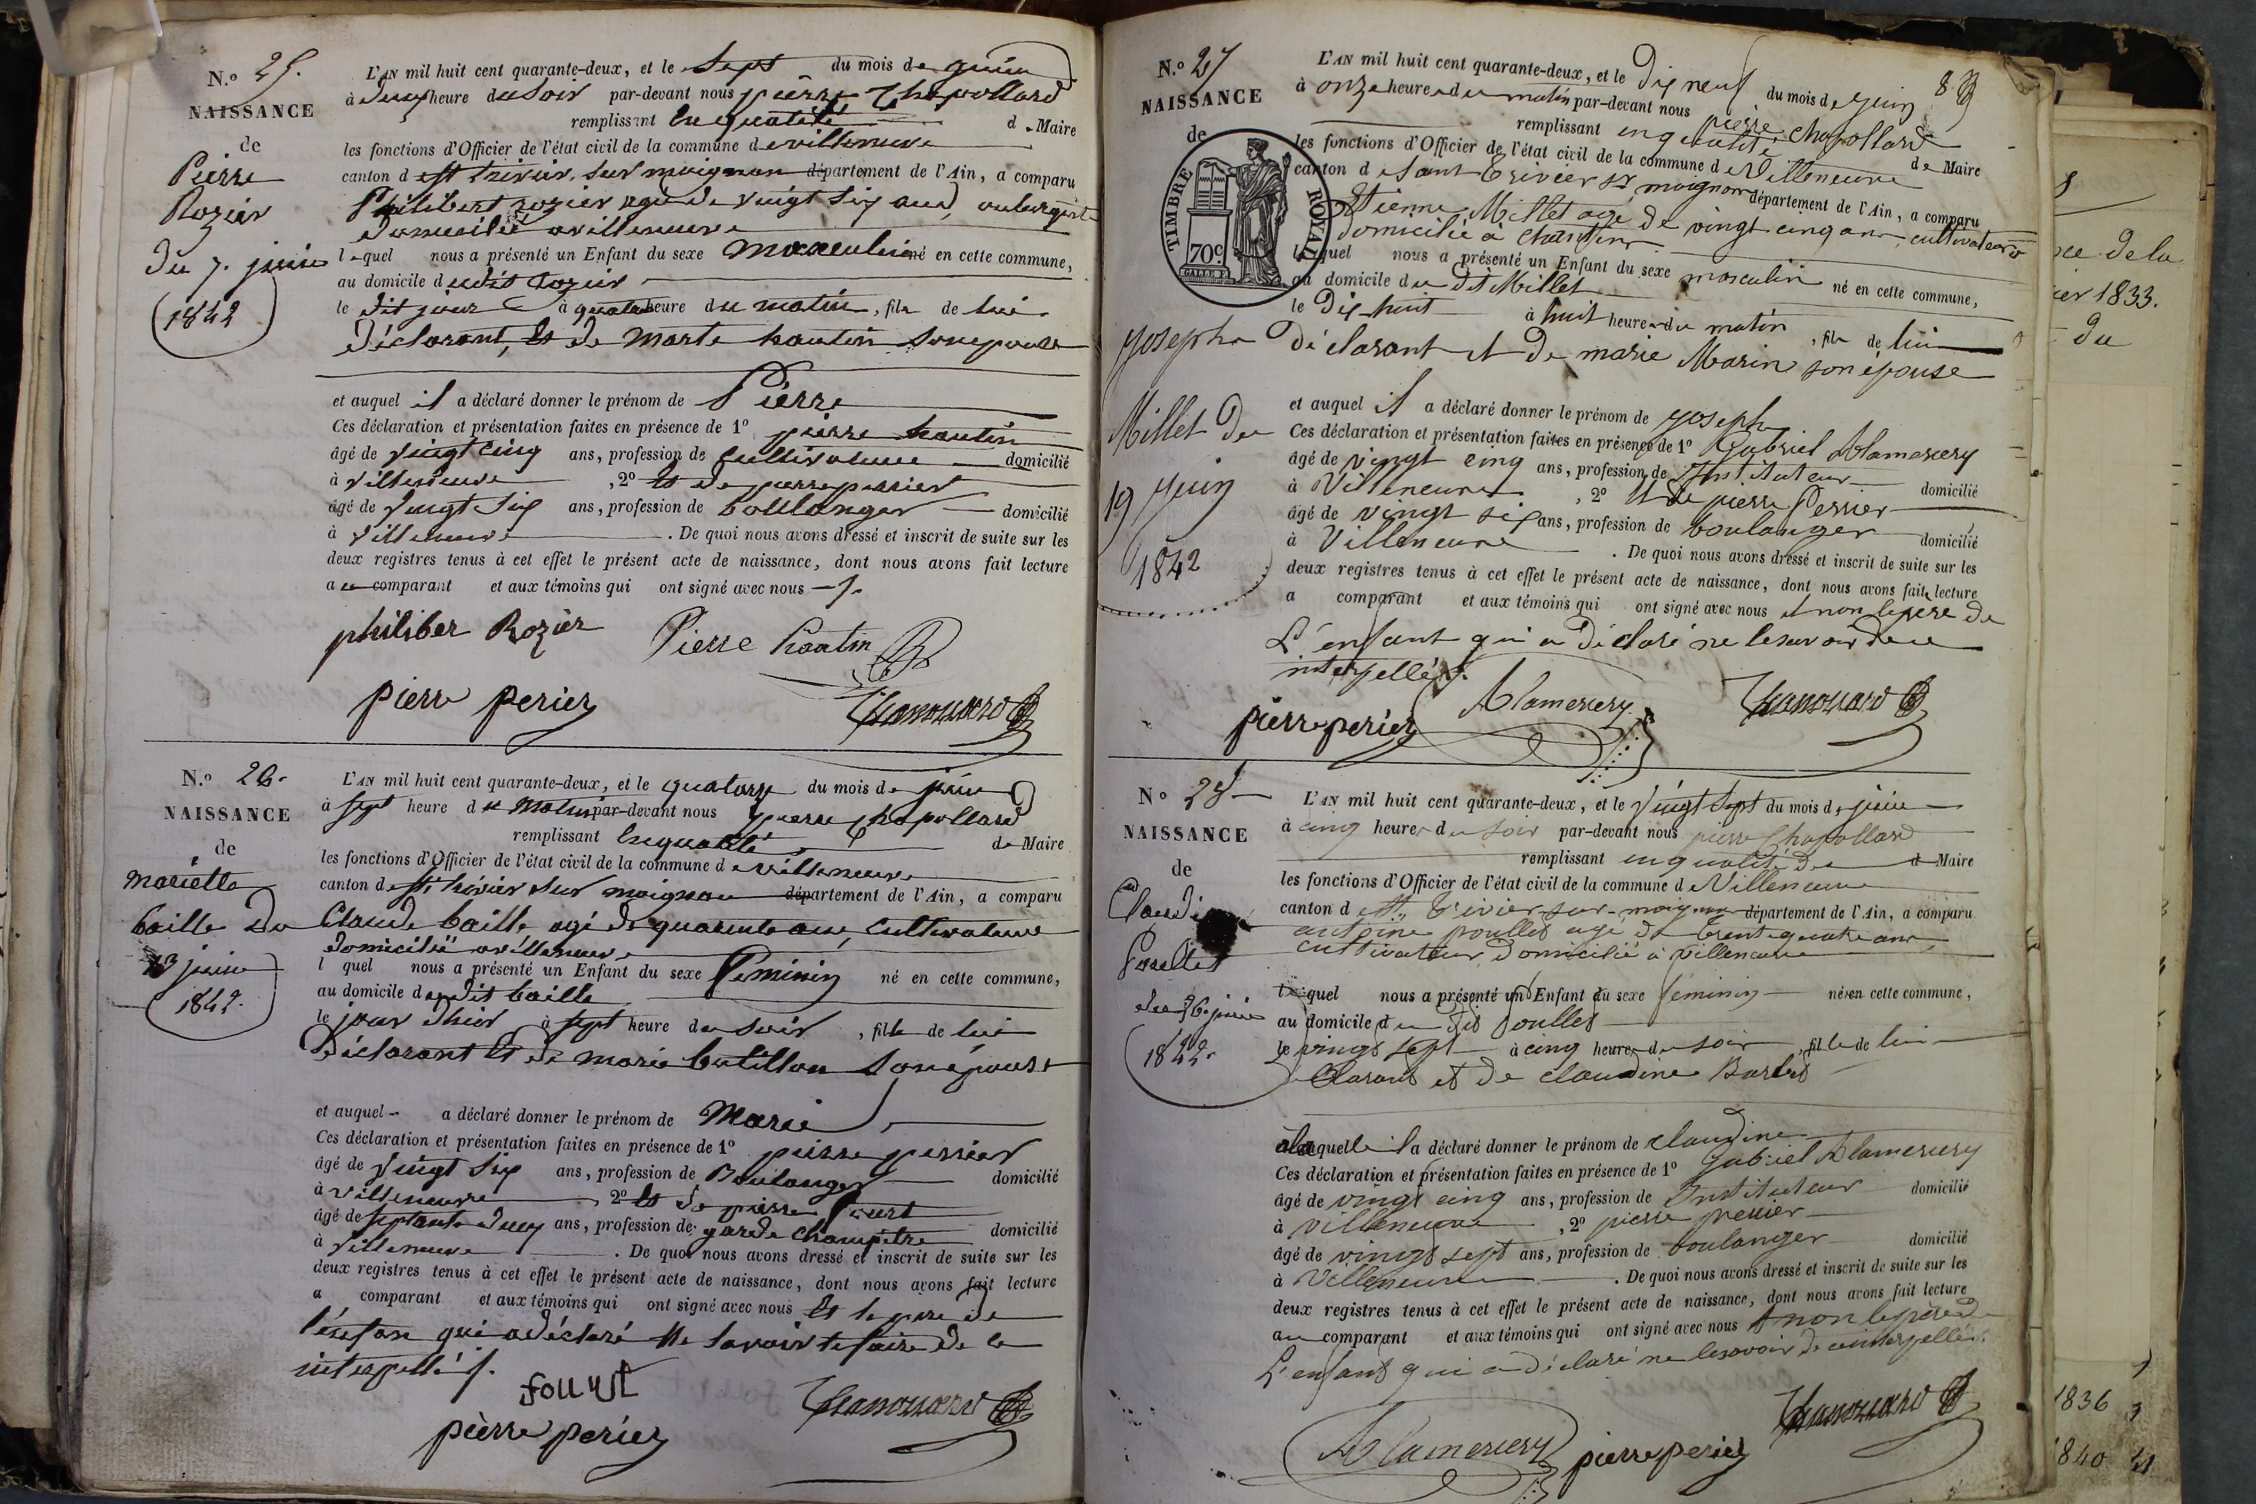 N.º 25.
NAISSANCE
de
Pierre
Rozier
du 7. juin
1842
L'AN mil huit cent quarante-deux, et le Sept du mois de juin
à deux heure du Soir par-devant nous pierre Chapollard
remplissant en qualité d Maire
les fonctions d'Officier de l'état civil de la commune de villeneuve
canton de St trivier sur moignan département de l'Ain, a comparu
Philibert rozier agé de vingt six ans, aubergiste
domicilié a villeneuve
lequel nous a présenté un Enfant du sexe masculin né en cette commune,
au domicile dudit rozier
le dit jour à quatre heure du matin, fils de lui
déclarant, et de Marte hautin son epouse
et auquel il a déclaré donner le prénom de Pierre
Ces déclaration et présentation faites en présence de 1º pierre hautin
âgé de vingt cinq ans, profession de cultivateur domicilié
à villeneuve, 2º et de pierre perrier
âgé de vingt six ans, profession de boullanger domicilié
à villeneuve. De quoi nous avons dressé et inscrit de suite sur les
deux registres tenus à cet effet le présent acte de naissance, dont nous avons fait lecture
au comparant et aux témoins qui ont signé avec nous
philiber Rozier Pierre hautin
pierre perier Chapollard
N.º 26.
NAISSANCE
de
mariette
baille du
13 juin
1842.
L'AN mil huit cent quarante-deux, et le quatorze du mois de juin
à sept heure du matin par-devant nous pierre Chapollard
remplissant en qualité de Maire
les fonctions d'Officier de l'état civil de la commune de villeneuve
canton de St trivier sur moignan département de l'Ain, a comparu
Claude baille agé de quarente ans, cultivateur
domicilié a villeneuve
l quel nous a présenté un Enfant du sexe Feminin né en cette commune,
au domicile dudit baille
le jour dhier à sept heure du soir, fille de lui
déclarant et de marie butillon son épouse
et auquel a déclaré donner le prénom de Marie
Ces déclaration et présentation faites en présence de 1º pierre perrier
âgé de vingt six ans, profession de Boulanger domicilié
à villeneuve, 2º et de pierre
âgé de septante deux ans, profession de garde champetre domicilié
à villeneuve. De quoi nous avons dressé et inscrit de suite sur les
deux registres tenus à cet effet le présent acte de naissance, dont nous avons fait lecture
a comparant et aux témoins qui ont signé avec nous et le pere de
l'enfan qui a déclaré ne savoir le faire de ce
interpellé
pierre perier Chapollard
N.º 27
NAISSANCE
de
Joseph
Millet du
19 Juin
1842
8
TIMBRE ROYAL
70c.
L'AN mil huit cent quarante-deux, et le Dix neuf du mois de Juin
à onze heure du matin par-devant nous pierre Chapollard
remplissant en qualité de Maire
les fonctions d'Officier de l'état civil de la commune de Villeneuve
canton de Saint Trivier sr moignan département de l'Ain, a comparu
Etienne Millet agé de vingt cinq ans, cultivateur
domicilié à
lequel nous a présenté un Enfant du sexe masculin né en cette commune,
au domicile du dit Millet
le Dix-huit à huit heure du matin, fils de lui
Déclarant et de marie Marin son épouse
et auquel il a déclaré donner le prénom de Joseph
Ces déclaration et présentation faites en présence de 1º Gabriel Alamercery
âgé de vingt cinq ans, profession de Instituteur domicilié
à Villeneuve, 2º et de pierre Perrier
âgé de vingt six ans, profession de boulanger domicilié
à Villeneuve. De quoi nous avons dressé et inscrit de suite sur les
deux registres tenus à cet effet le présent acte de naissance, dont nous avons fait lecture
a comparant et aux témoins qui ont signé avec nous et non le père de
L'enfant qui a déclaré ne le savoir de ce
interpellé
pierre perier Alamercery Chapollard
Nº 28
NAISSANCE
de
Claudine
Poullet
du 26 juin
1842.
L'AN mil huit cent quarante-deux, et le vingt sept du mois de juin
à cinq heures du soir par-devant nous pierre Chapollard
remplissant en qualité de Maire
les fonctions d'Officier de l'état civil de la commune de Villeneuve
canton de St. Trivier sur moignan département de l'Ain, a comparu
antoine poullet agé de trente quatre ans,
cultivateur domicilié à villeneuve
lequel nous a présenté un Enfant du sexe féminin née en cette commune,
au domicile du dit Poullet
le vingt sept à cinq heures du soir, fille de lui
déclarant et de claudine
a laquelle il a déclaré donner le prénom de claudine
Ces déclaration et présentation faites en présence de 1º Gabriel Alamercery
âgé de vingt cinq ans, profession de Instituteur domicilié
à Villeneuve, 2º pierre perrier
âgé de vingt sept ans, profession de boulanger domicilié
à Villeneuve. De quoi nous avons dressé et inscrit de suite sur les
deux registres tenus à cet effet le présent acte de naissance, dont nous avons fait lecture
au comparant et aux témoins qui ont signé avec nous et non le père de
L'enfant qui a déclaré ne le savoir de ce interpellé.
Alamercery pierre perier Chapollard
de la
1833.
du
1836
1840